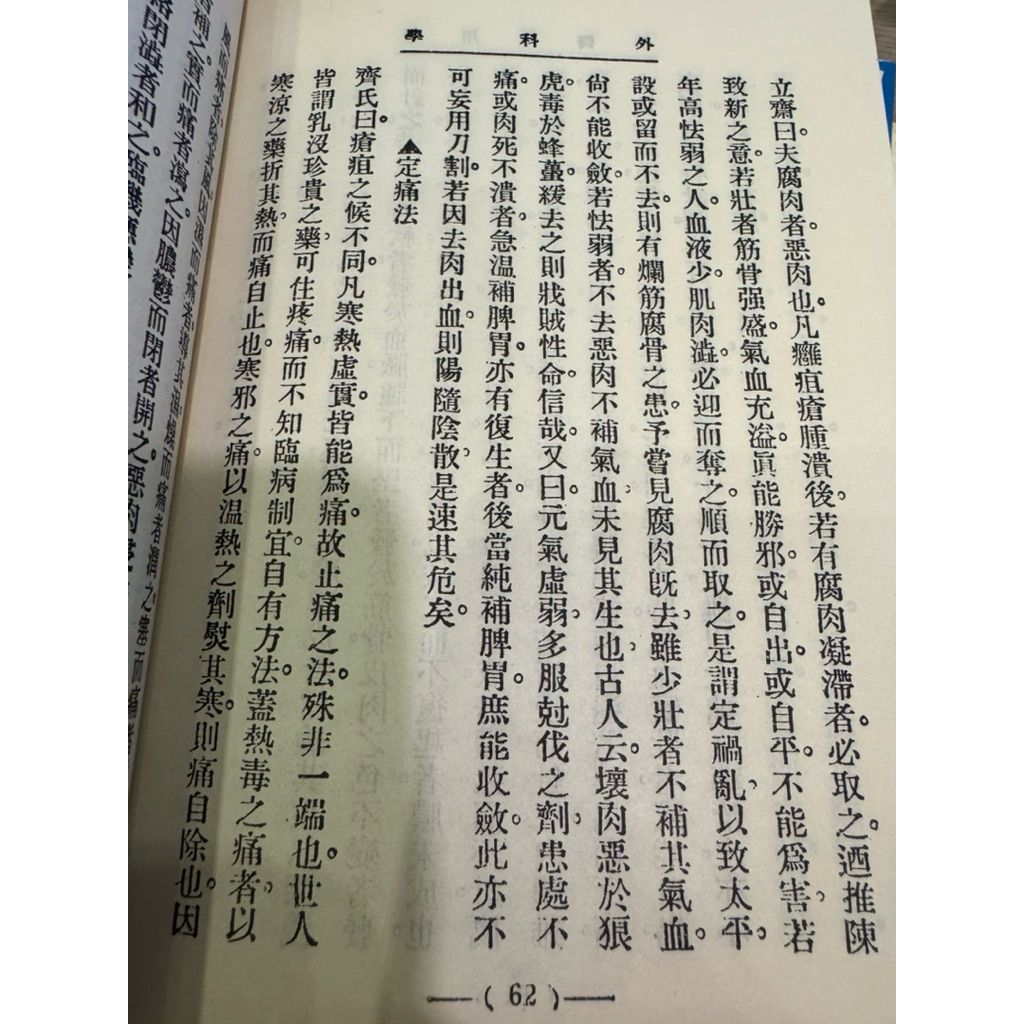 外科學
立齋曰。夫腐肉者。惡肉也。凡癰疽瘡腫潰後。若有腐肉凝滯者。必取之。迺推陳
致新之意。若壯者筋骨强盛。氣血充溢。眞能勝邪。或自出。或自平。不能爲害。若
年高怯弱之人。血液少。肌肉澁。必迎而奪之。順而取之。是謂定禍亂。以致太平。
設或留而不去。則有爛筋腐骨之患。予嘗見腐肉旣去。雖少壯者不補其氣血。
尙不能收斂。若怯弱者。不去惡肉。不補氣血。未見其生也。古人云。壞肉惡於狼
虎。毒於蜂蠆。緩去之則戕賊性命。信哉。又曰。元氣虛弱。多服尅伐之劑。患處不
痛。或肉死不潰者。急溫補脾胃。亦有復生者。後當純補脾胃。庶能收斂。此亦不
可妄用刀割。若因去肉出血。則陽隨陰散。是速其危矣。
▲定痛法
齊氏曰。瘡疽之候不同。凡寒熱虛實。皆能爲痛。故止痛之法。殊非一端也。世人
皆謂乳沒珍貴之藥。可住疼痛。而不知臨病制宜。自有方法。蓋熱毒之痛者。以
寒涼之藥折其熱。而痛自止也。寒邪之痛。以温熱之劑熨其寒。則痛自除也。因
風而痛者。除其風。因濕而痛者。導其濕。燥而痛者。潤之。塞而痛者
之。實而痛者瀉之。因膿鬱而閉者開之。惡肉
閉澁者和之。臨機應變
(62)